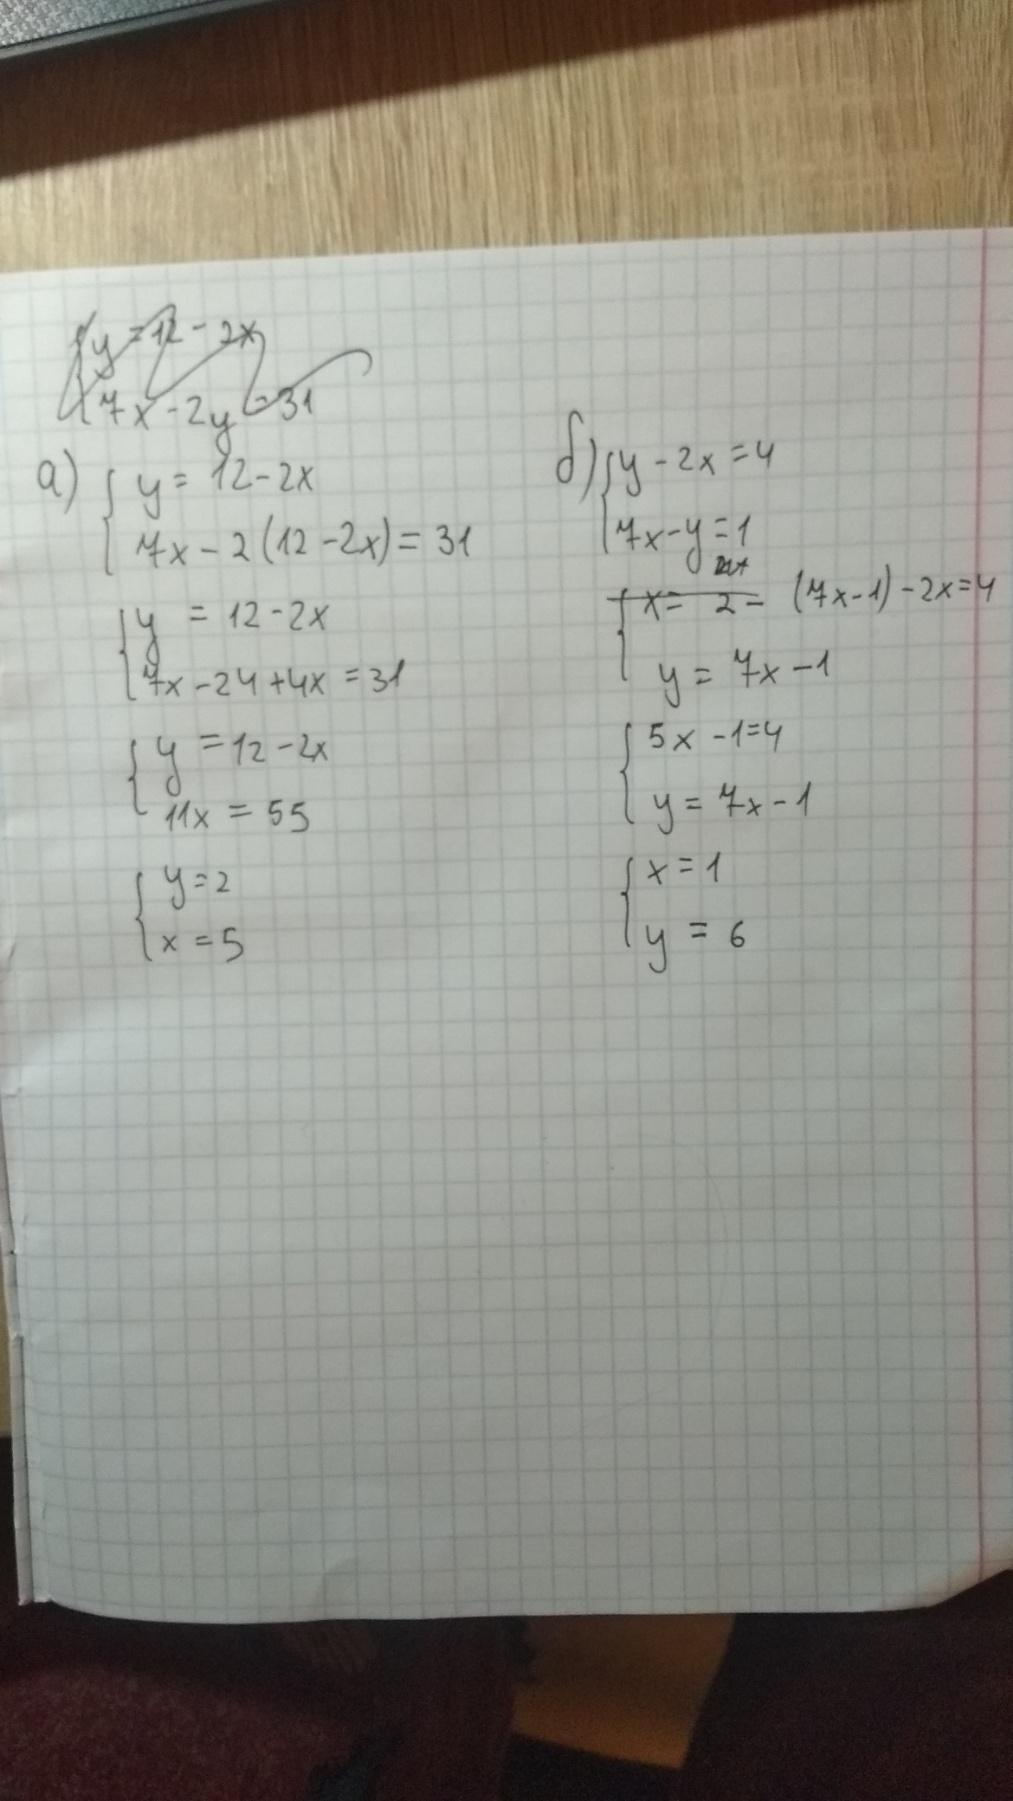 y = 12 - 2x
7x - 2y = 31
а) { y = 12 - 2x
7x - 2(12 - 2x) = 31
{ y = 12 - 2x
7x - 24 + 4x = 31
{ y = 12 - 2x
11x = 55
{ y = 2
x = 5
б) { y - 2x = 4
7x - y = 1
{ x = 2 - (7x - 1) - 2x = 4
y = 7x - 1
{ 5x - 1 = 4
y = 7x - 1
{ x = 1
y = 6